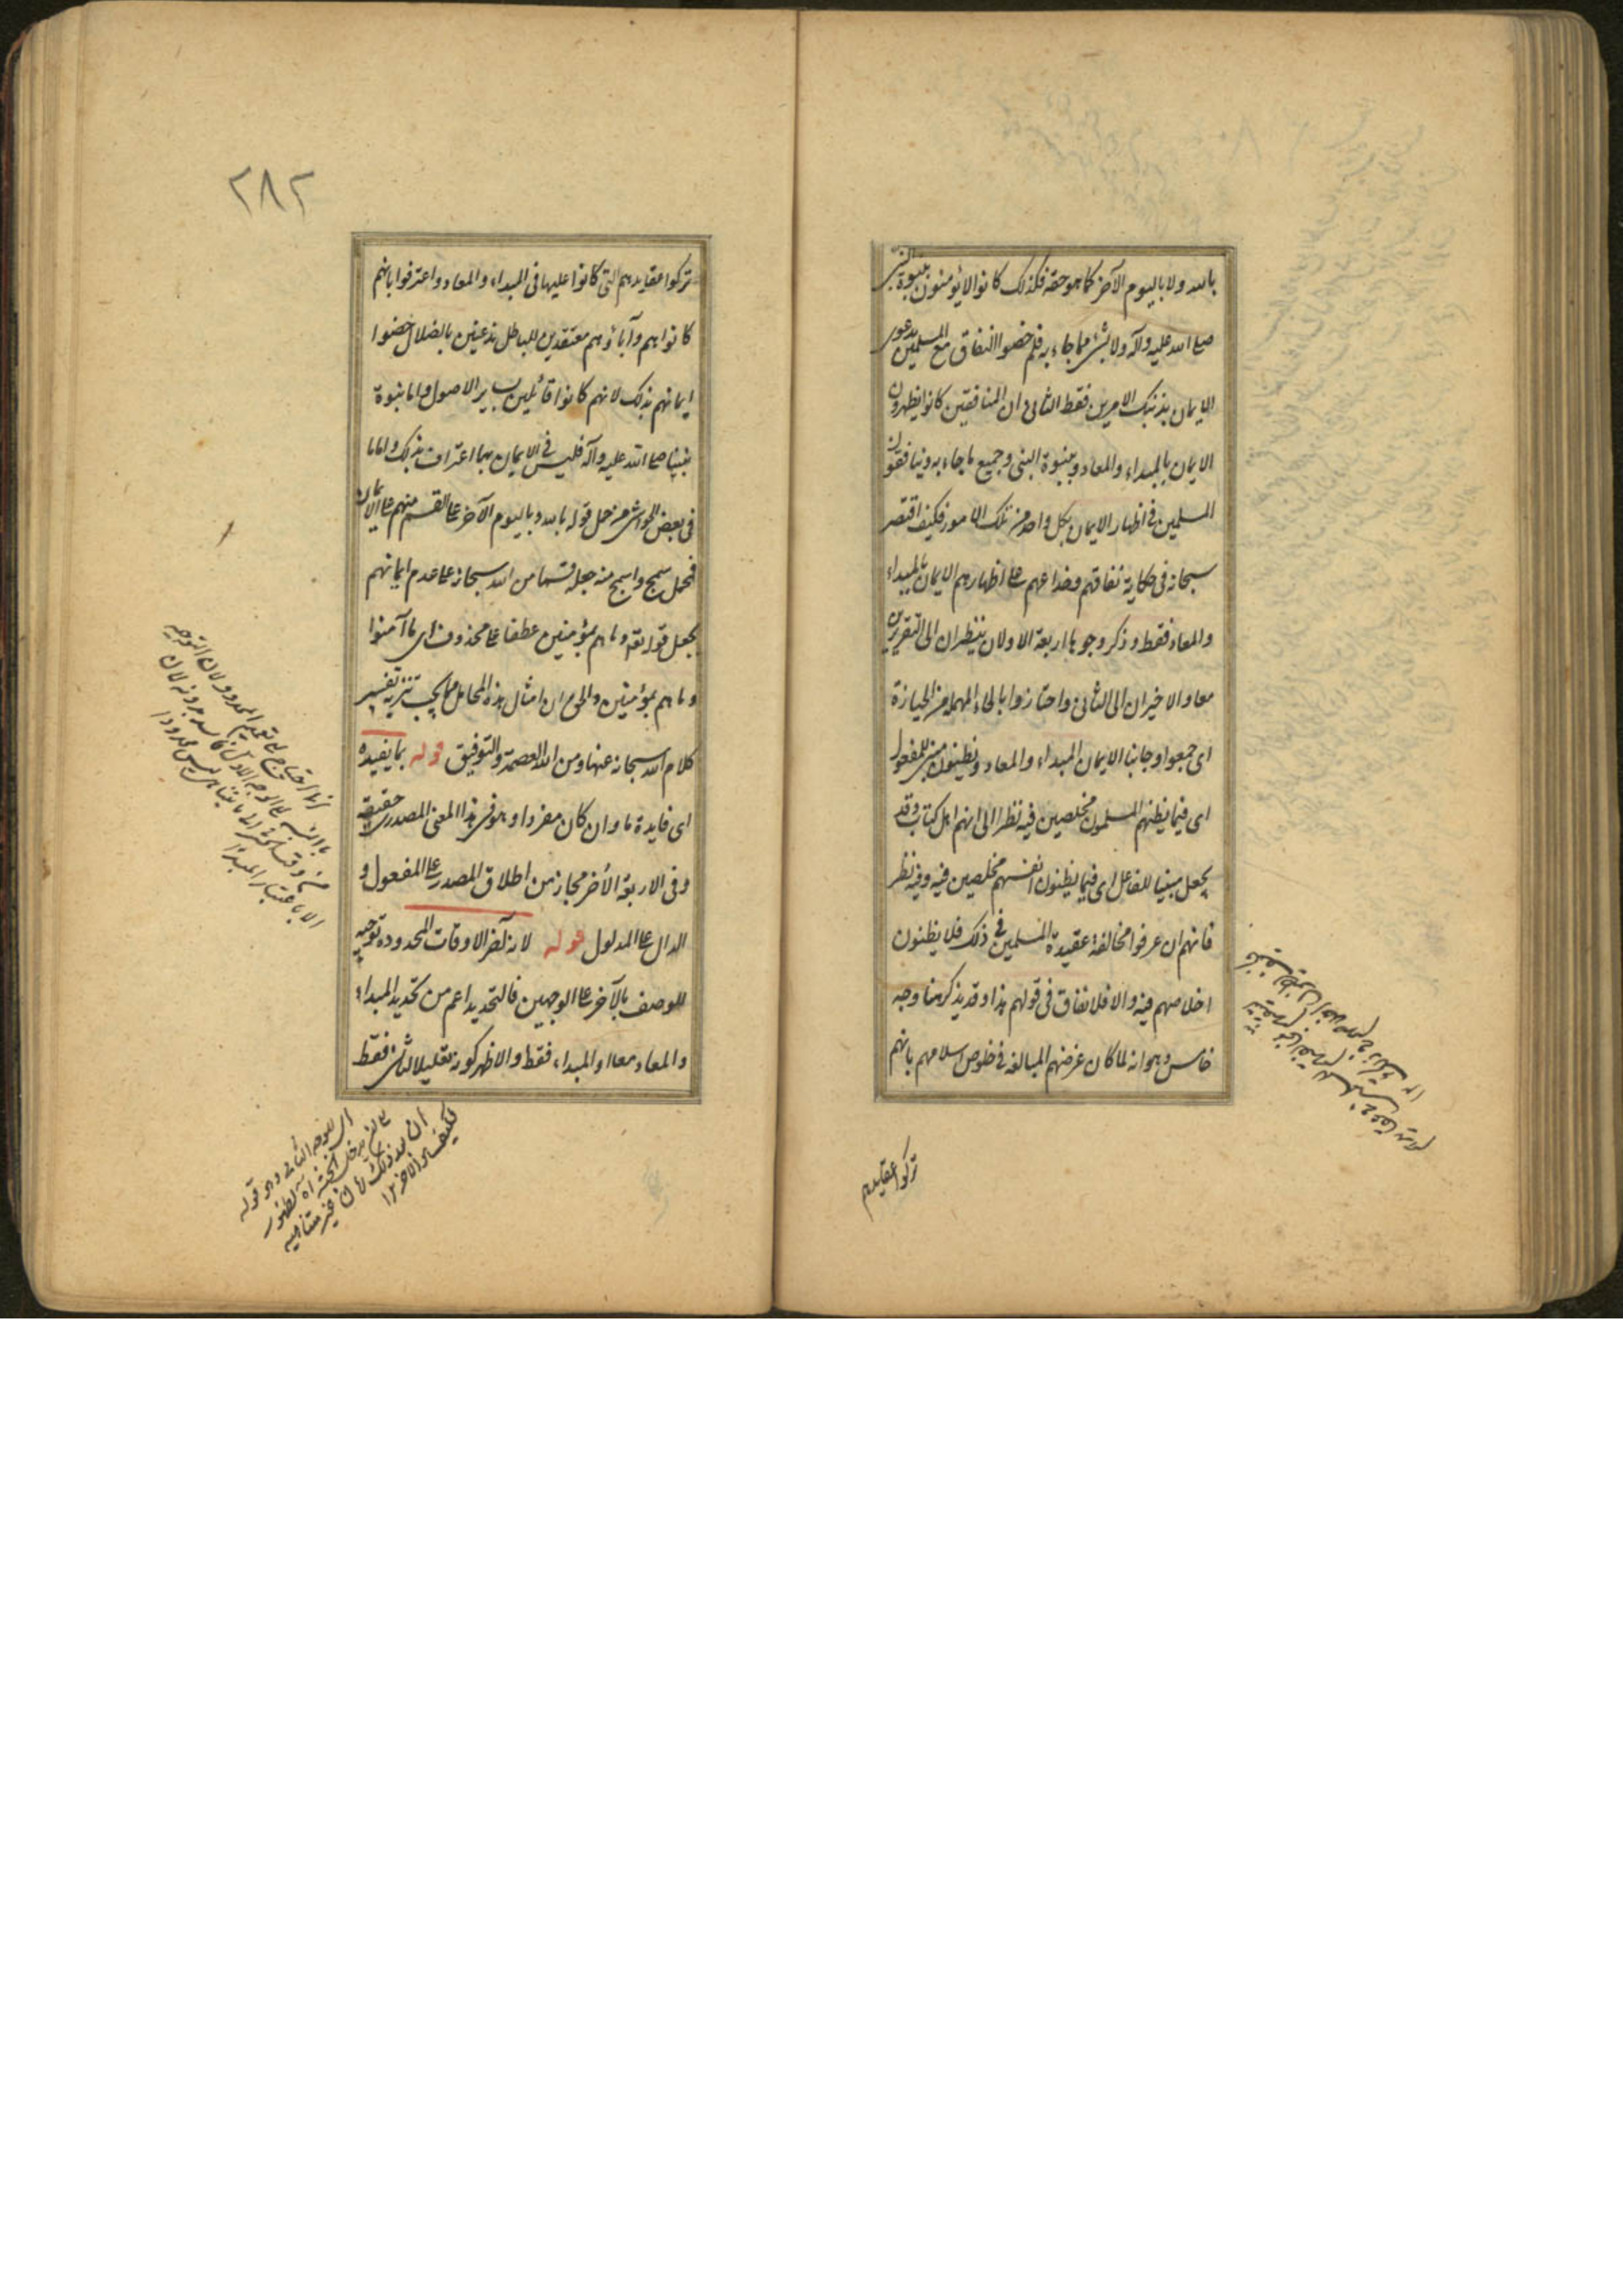 بالله ولا باليوم الآخر كما هو حقه فكذلك كانوا لا يؤمنون بنبوة النبي
صلى الله عليه وآله ولا بشئ مما جاء به فلم خصوا النفاق مع المسلمين بدعوى
الايمان بذينك الامرين فقط الثانى ان المنافقين كانوا يظهرون
الايمان بالمبداء والمعاد وبنبوة النبى وجميع ما جاء به وينافقون
المسلمين فى اظهار الايمان بكل واحد من تلك الامور فكيف اقتصر
سبحانه فى حكاية نفاقهم وخداعهم على اظهارهم الايمان بالمبداء
والمعاد فقط وذكر وجوها اربعة الاولان ينظران الى التقريرين
معا والاخيران الى الثانى واحتازوا بالحاء المهملة من الحيازة
اى جمعوا وجانبا الايمان المبداء والمعاد ويظنون مبنى للمفعول
اى فيما يظنهم المسلمون مخلصين فيه نظرا الى انهم اهل كتاب وقد
يجعل مبنيا للفاعل اى فيما يظنون انفسهم مخلصين فيه وفيه نظر
فانهم ان عرفوا مخالفة عقيدة المسلمين فى ذلك فلا يظنون
اخلاصهم فيه والا فلا نفاق فى قولهم هذا وقد يذكر هنا وجه
خامس وهو انه لما كان غرضهم المبالغة فى خلوص اسلامهم بانهم
تركوا عقايدهم
٢٨٢
تركوا عقايدهم التى كانوا عليها فى المبداء والمعاد واعترفوا بانهم
كانوا هم وآباؤهم معتقدين للباطل مذعنين بالضلال خصوا
ايمانهم بذلك لانهم كانوا قائلين بساير الاصول واما نبوة
نبينا صلى الله عليه وآله فليس فى الايمان بها اعتراف بذلك واما ما
فى بعض الحواشى من حمل قوله بالله وباليوم الآخر على القسم منهم على الايمان
فمحمل سمج واسمج منه جعله قسما من الله سبحانه على عدم ايمانهم
بجعل قوله تعه وما هم بمؤمنين عطفا على محذوف اى ما آمنوا
وما هم بمؤمنين والحق ان امثال هذه المحامل مما يجب تنزيه تفسير
كلام الله سبحانه عنها ومن الله العصمة والتوفيق قوله بما يفيده
اى فايدة ما وان كان مفردا وهو فى هذا المعنى المصدرى حقيقة
وفى الاربعة الأخر مجاز من اطلاق المصدر على المفعول و
الدال على المدلول قوله لانه آخر الاوقات المحدودة توجيه
للوصف بالآخر على الوجهين فالتحديد اعم من تحديد المبداء
والمعاد معا او المبداء فقط والاظهر كونه تعليلا للثانى فقط